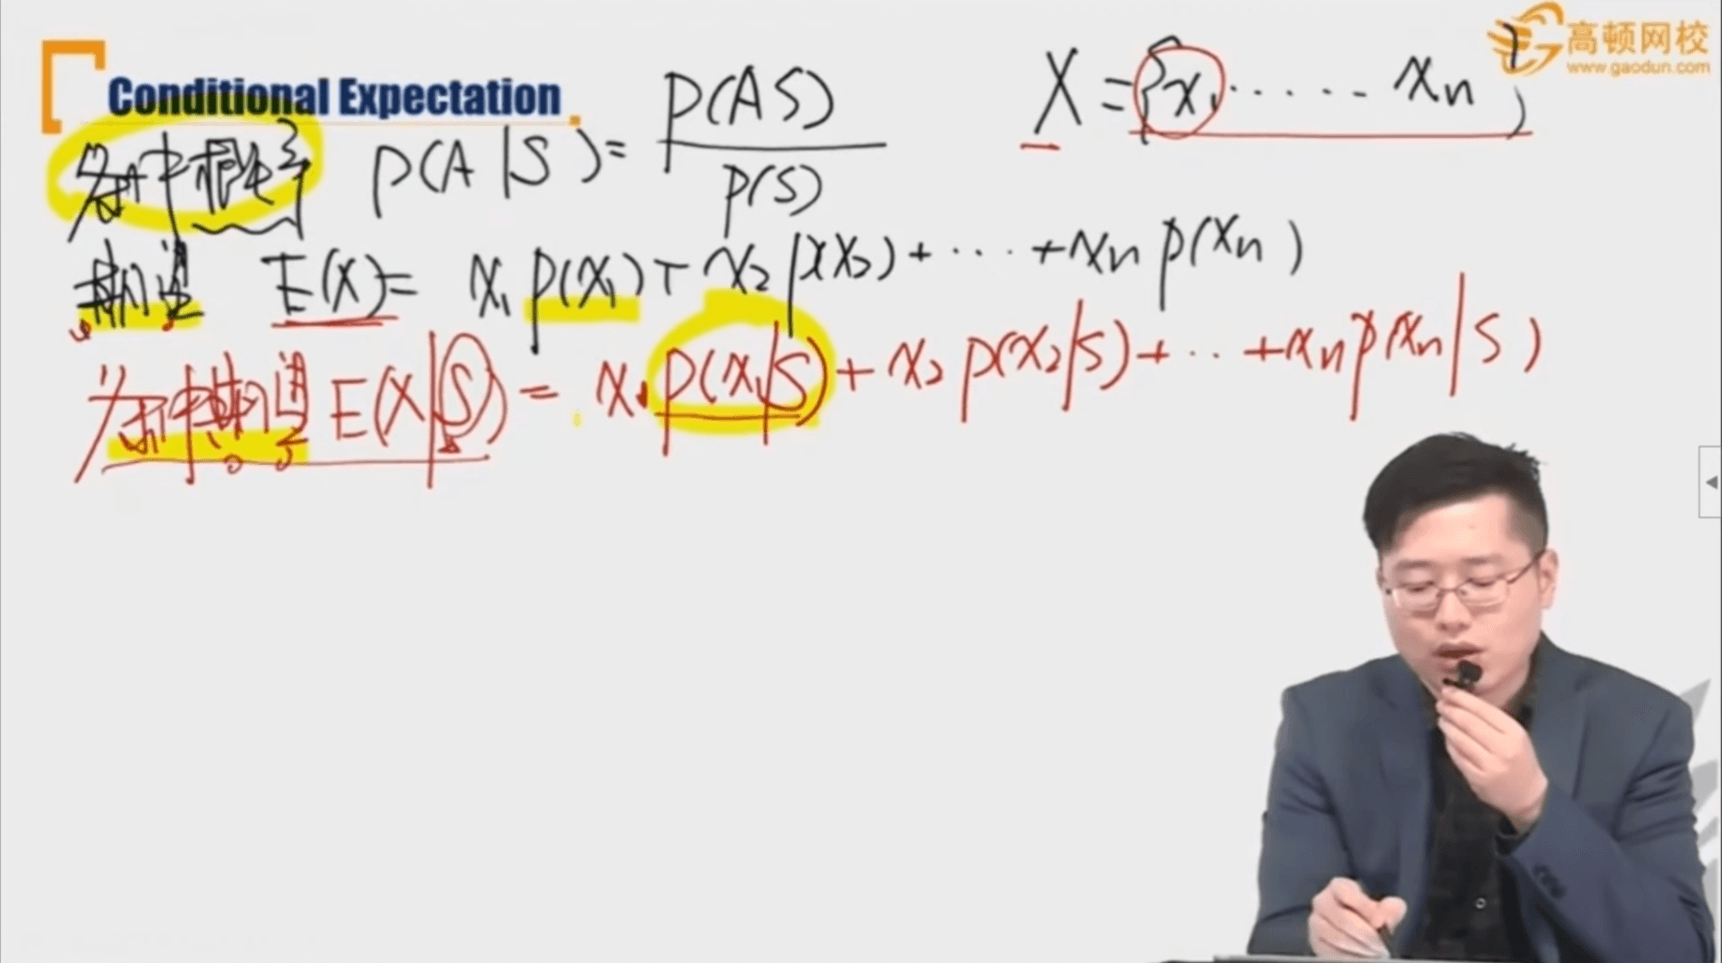 高顿网校
www.gaodun.com
Conditional Expectation
X = {x₁ ...... xₙ}
条件概率 P(A|S) = P(AS) / P(S)
期望 E(X) = x₁ P(x₁) + x₂ P(x₂) + ... + xₙ P(xₙ)
条件期望 E(X|S) = x₁ P(x₁|S) + x₂ P(x₂|S) + ... + xₙ P(xₙ|S)